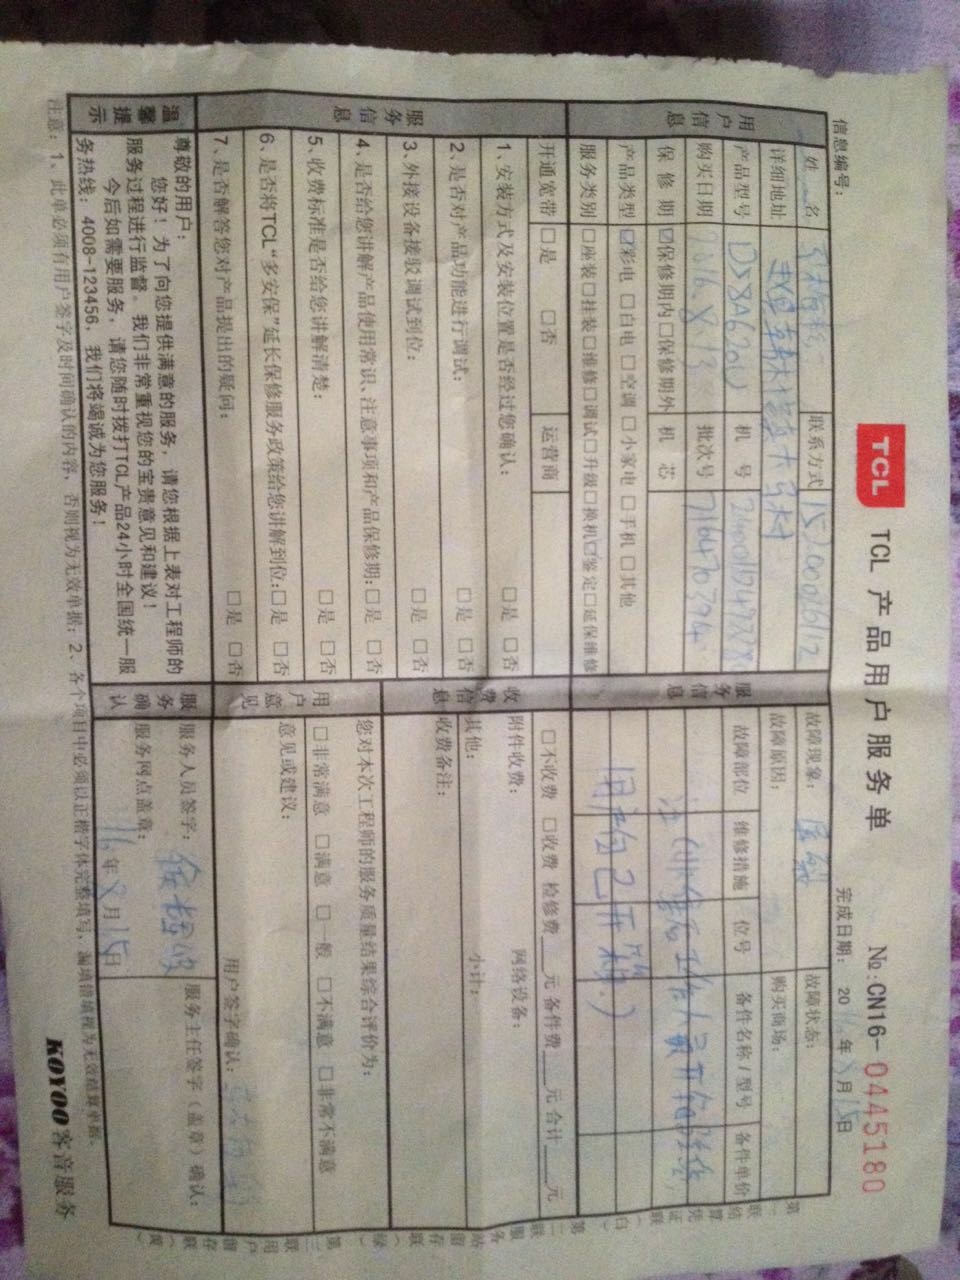 TCL TCL 产品用户服务单 №:CN16-0445180
信息编号: 完成日期: 20 年 8 月 15 日
用户信息
姓 名 联系方式 15200061612
详细地址
产品型号 D58A620U 机 号
购买日期 2016.8.13 批次号
保 修 期 ☑保修期内☐保修期外 机 芯
产品类型 ☑彩电 ☐白电 ☐空调 ☐小家电 ☐手机 ☐其他
服务类别 ☐座装☐挂装☐维修☐调试☐升级☐换机☑鉴定☐延保维修
开通宽带 ☐是 ☐否 运营商
服务信息
1、安装方式及安装位置是否经过您确认: ☐是 ☐否
2、是否对产品功能进行调试: ☐是 ☐否
3、外接设备接驳调试到位: ☐是 ☐否
4、是否给您讲解产品使用常识、注意事项和产品保修期:☐是 ☐否
5、收费标准是否给您讲解清楚: ☐是 ☐否
6、是否将TCL“多安保”延长保修服务政策给您讲解到位:☐是 ☐否
7、是否解答您对产品提出的疑问: ☐是 ☐否
温馨提示
尊敬的用户:
您好!为了向您提供满意的服务,请您根据上表对工程师的
服务过程进行监督。我们非常重视您的宝贵意见和建议!
今后如需要服务,请您随时拨打TCL产品24小时全国统一服
务热线:4008-123456,我们将竭诚为您服务!
服务信息
故障现象: 屏裂 故障状态:
故障原因: 购买商场:
故障部位 维修措施 位号 备件名称/型号 备件单价
注(售后工作人员开箱验
用户自己开箱。)
收费信息
☐不收费 ☐收费 检修费 元 备件费 元 合计 元
附件收费: 网络设备:
其他: 小计:
收费备注:
用户意见
您对本次工程师的服务质量结果综合评价为:
☐非常满意 ☐满意 ☐一般 ☐不满意 ☐非常不满意
意见或建议:
用户签字确认:
服务确认
服务人员签字: 服务主任签字(盖章)确认:
服务网点盖章:
16年 8 月 15日
注意:1、此单必须有用户签字及时间确认的内容,否则视为无效单据;2、各个项目中必须以正楷字体完整填写,漏填错填视为无效结算单据。
KOYOO客音服务
第一联结算凭证联(白)
第二联服务站留存联(绿)
第三联用户留存联(黄)